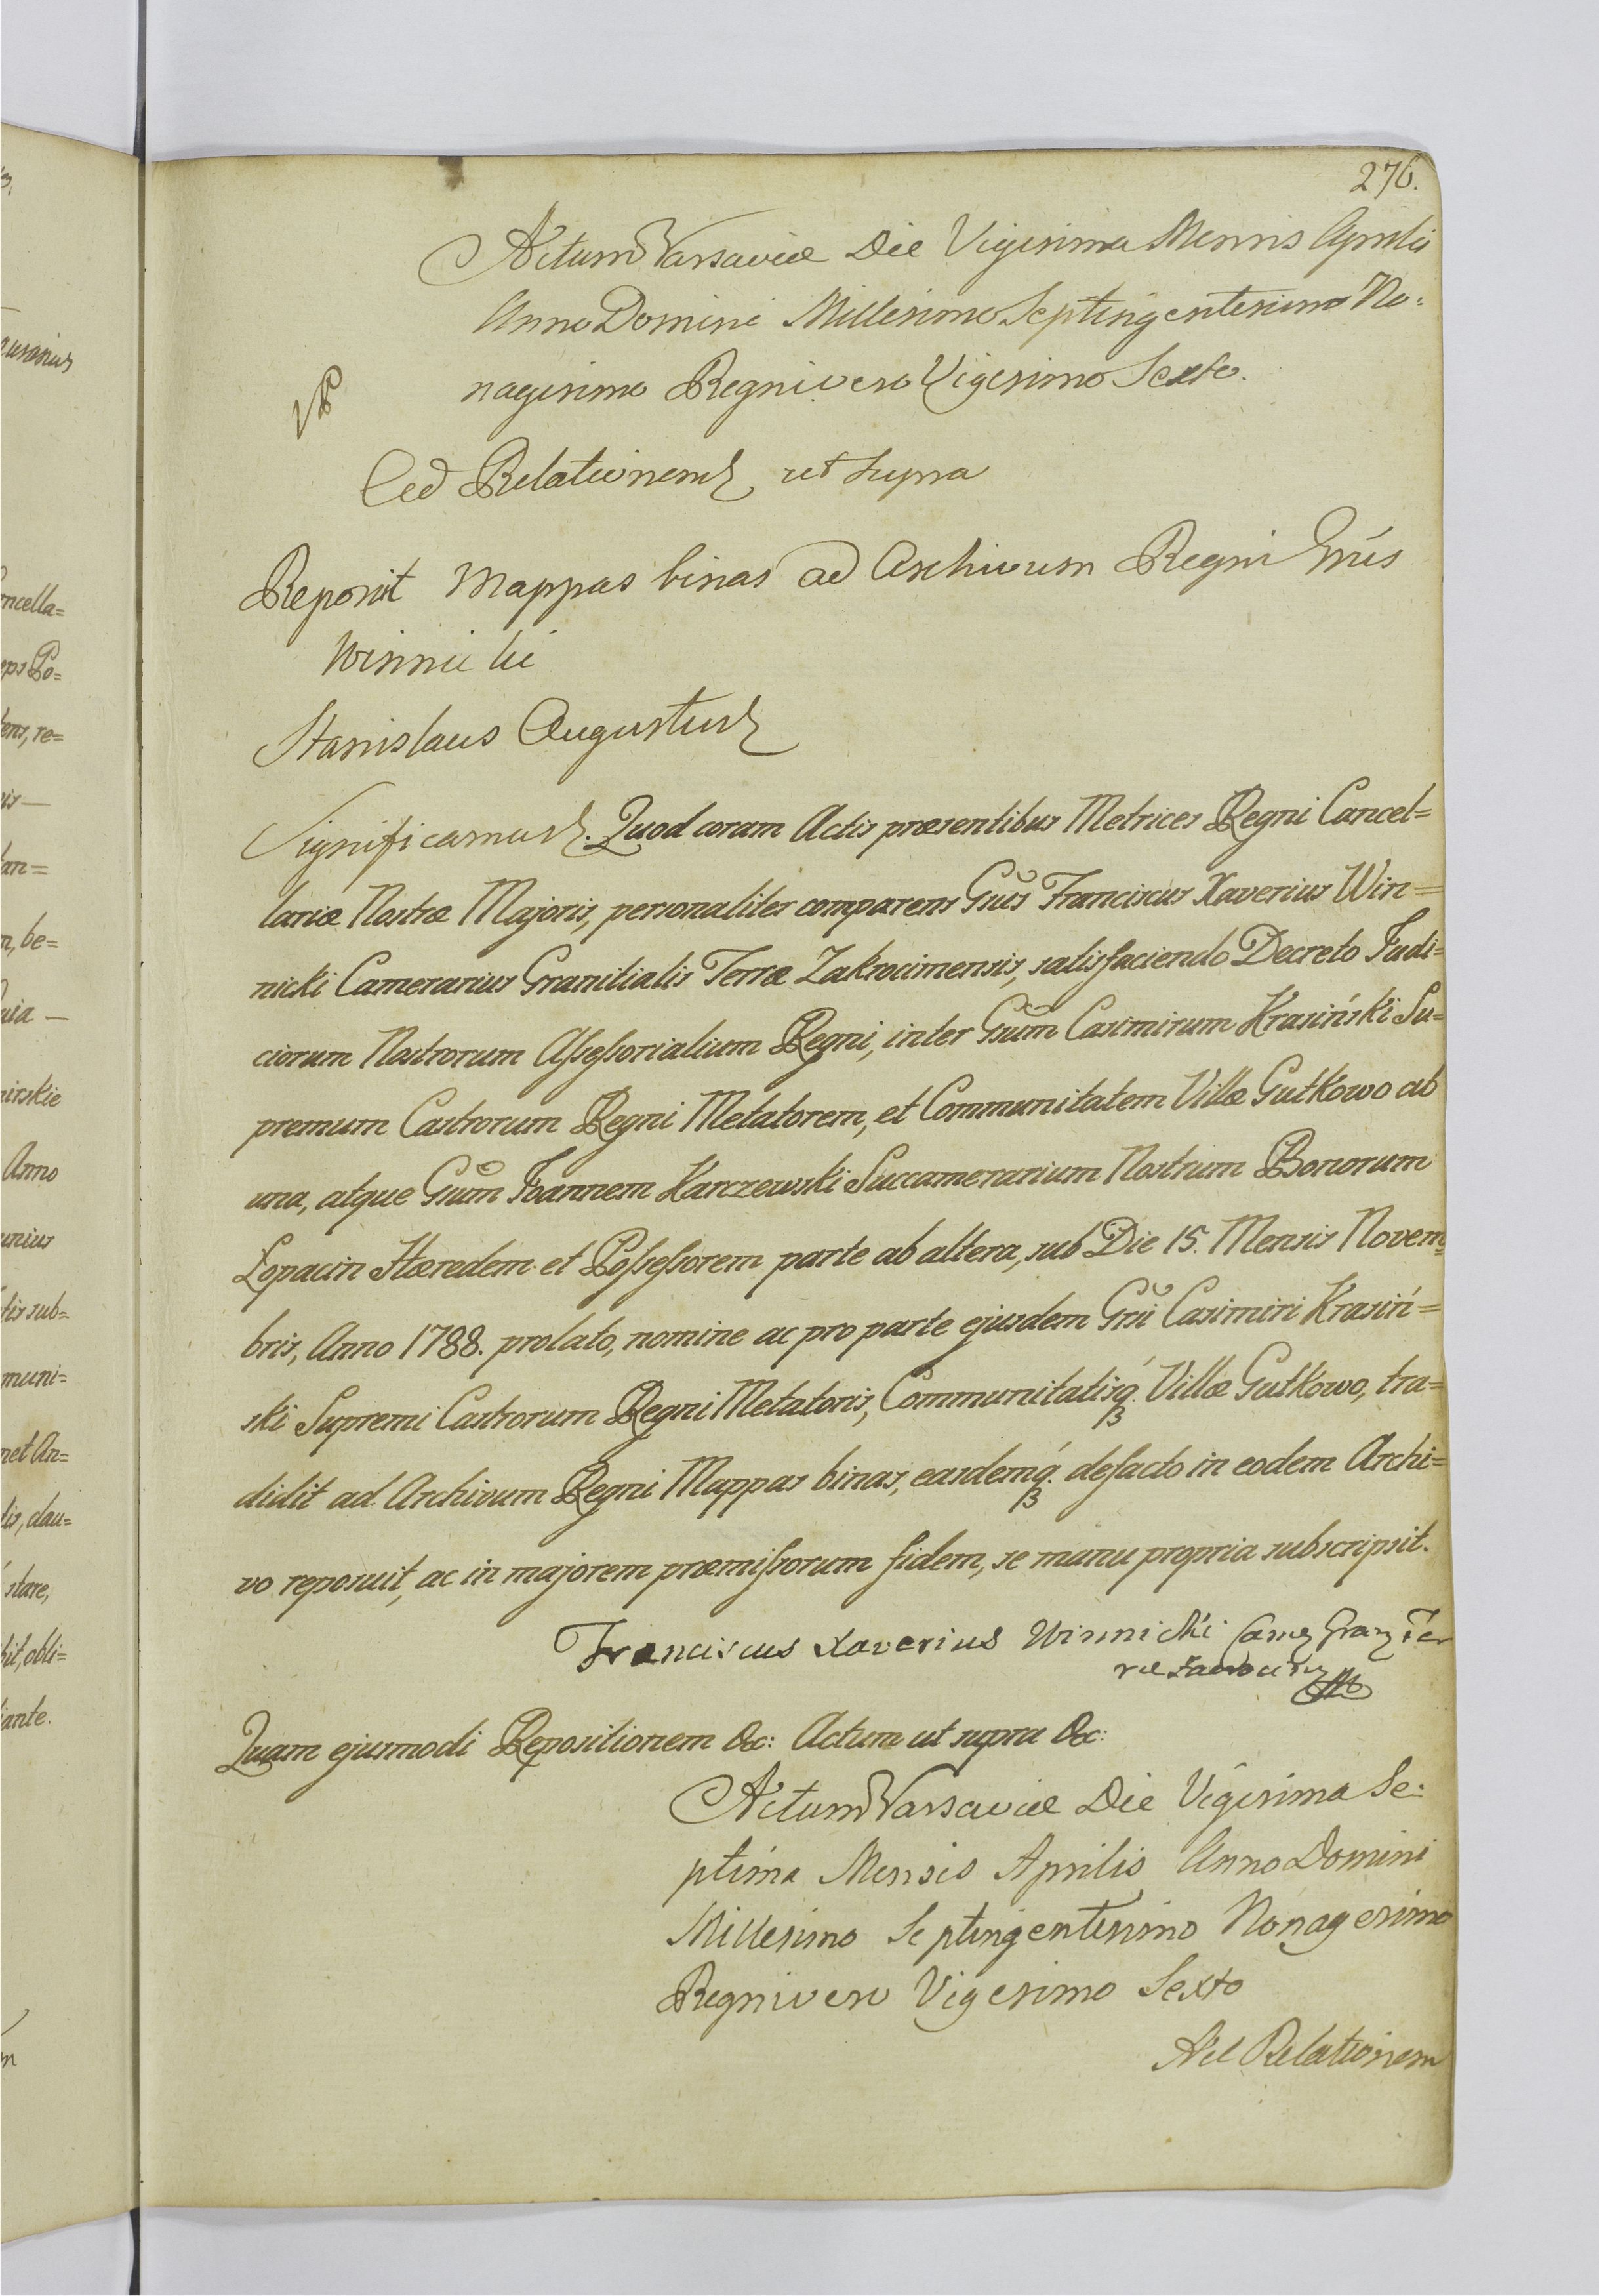 276.
Actum Varsaviæ Die Vigesima Mensis Aprilis
Anno Domini Millesimo Septingentesimo No=
nagesimo Regni vero Vigesimo Sexto.
Ad Relationem ut supra
Reponit Mappas binas ad Archivum Regni Gn̄us
Winnicki
Stanislaus Augustus
Significamus. Quod coram Actis præsentibus Metrices Regni Cancel=
lariæ Nostræ Majoris, personaliter comparens Gn̄us Franciscus Xaverius Win=
nicki Camerarius Granitialis Terræ Zakrocimensis, satisfaciendo Decreto Judi=
ciorum Nostrorum Assessorialium Regni, inter Gn̄um Casimirum Krasiński Su=
premum Castrorum Regni Metatorem, et Communitatem Villæ Gutkowo ab
una, atque Gn̄um Joannem Karczewski Succamerarium Nostrum Bonorum
Łopacin Hæredem et Possessorem parte ab altera, sub Die 15. Mensis Novem=
bris, Anno 1788. prolato, nomine ac pro parte ejusdem Gn̄i Casimiri Krasiń=
ski Supremi Castrorum Regni Metatoris, Communitatisq́. Villæ Gutkowo, tra=
didit ad Archivum Regni Mappas binas, easdemq́. defacto in eodem Archi=
vo reposuit, ac in majorem præmissorum fidem, se manu propria subscripsit.
Franciscus Xaverius Winnicki Camer Gran Ter
ræ Zakrocim
Quam ejusmodi Repositionem &c: Actum ut supra &c:
Actum Varsaviæ Die Vigesima Se=
ptima Mensis Aprilis Anno Domini
Millesimo Septingentesimo Nonagesimo
Regni vero Vigesimo Sexto
Ad Relationem